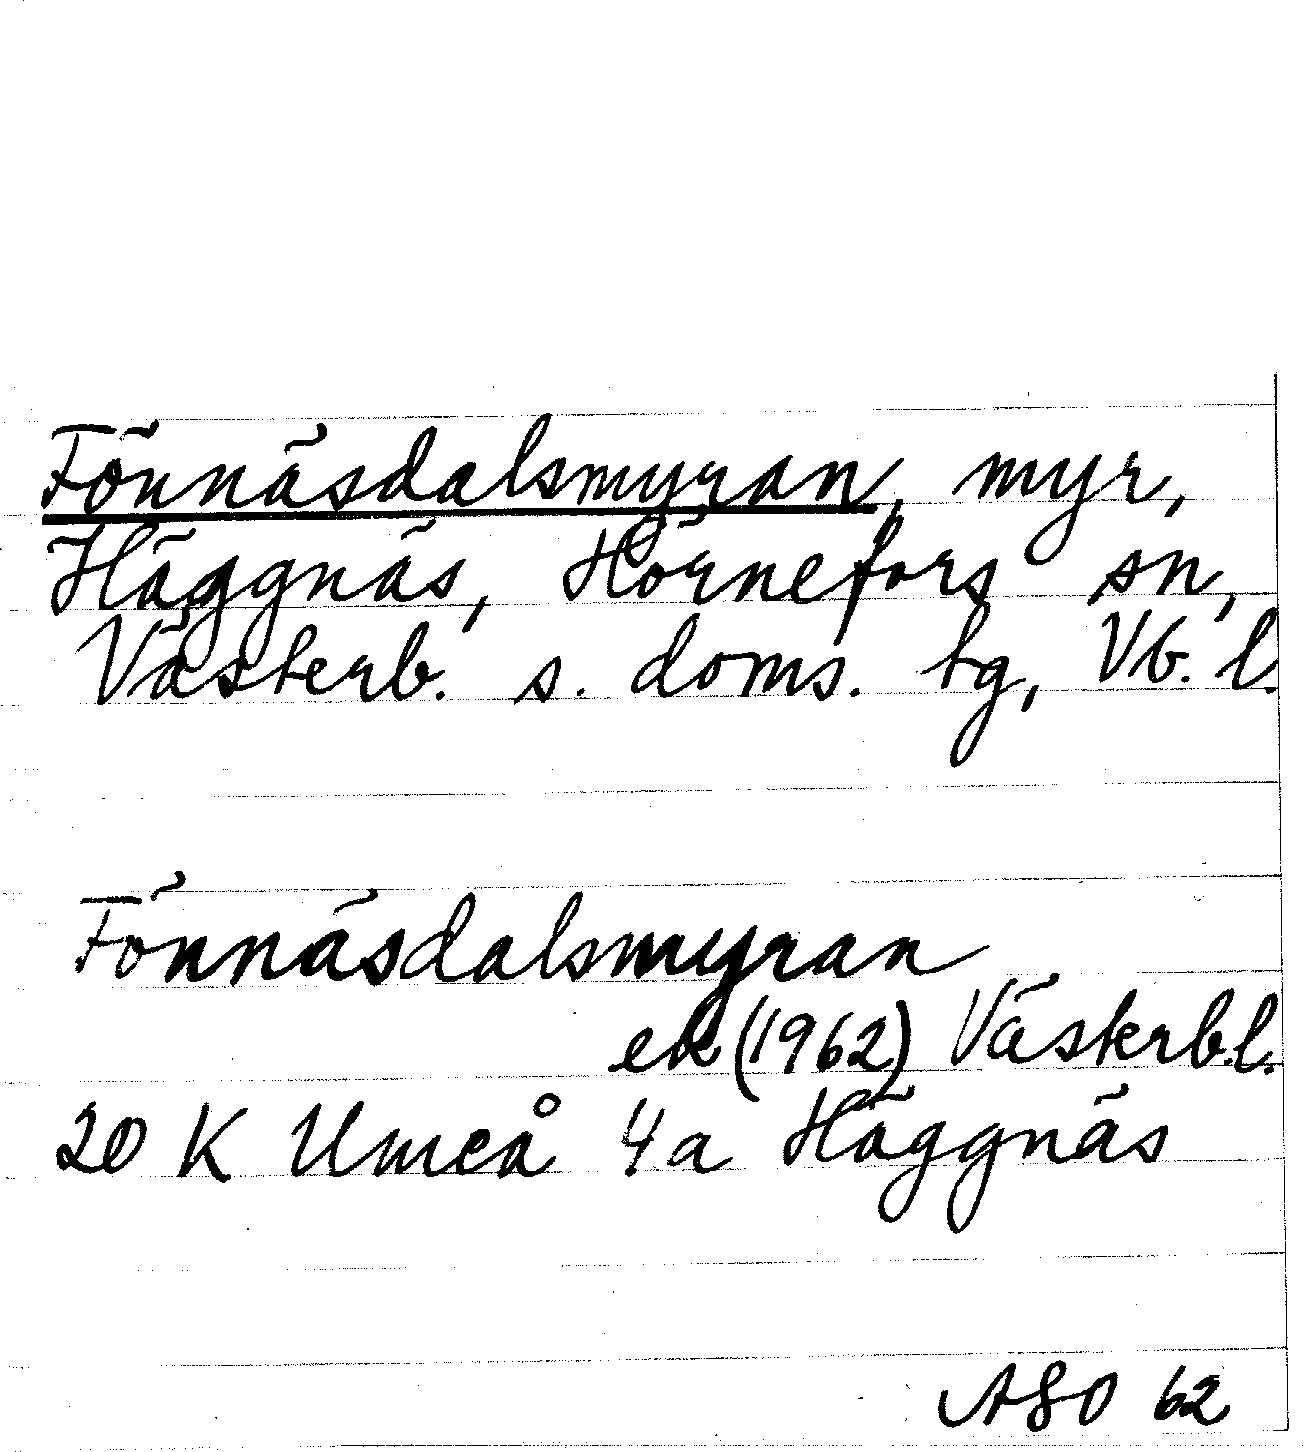 Fönnäsdalsmyran, myr,
Häggnäs, Hörnefors sn,
Västerb. s. doms. tg, Vb. l.
Fönnäsdalsmyran
ek (1962) Västerb.l.
20 K Umeå 4a Häggnäs
ASO 62